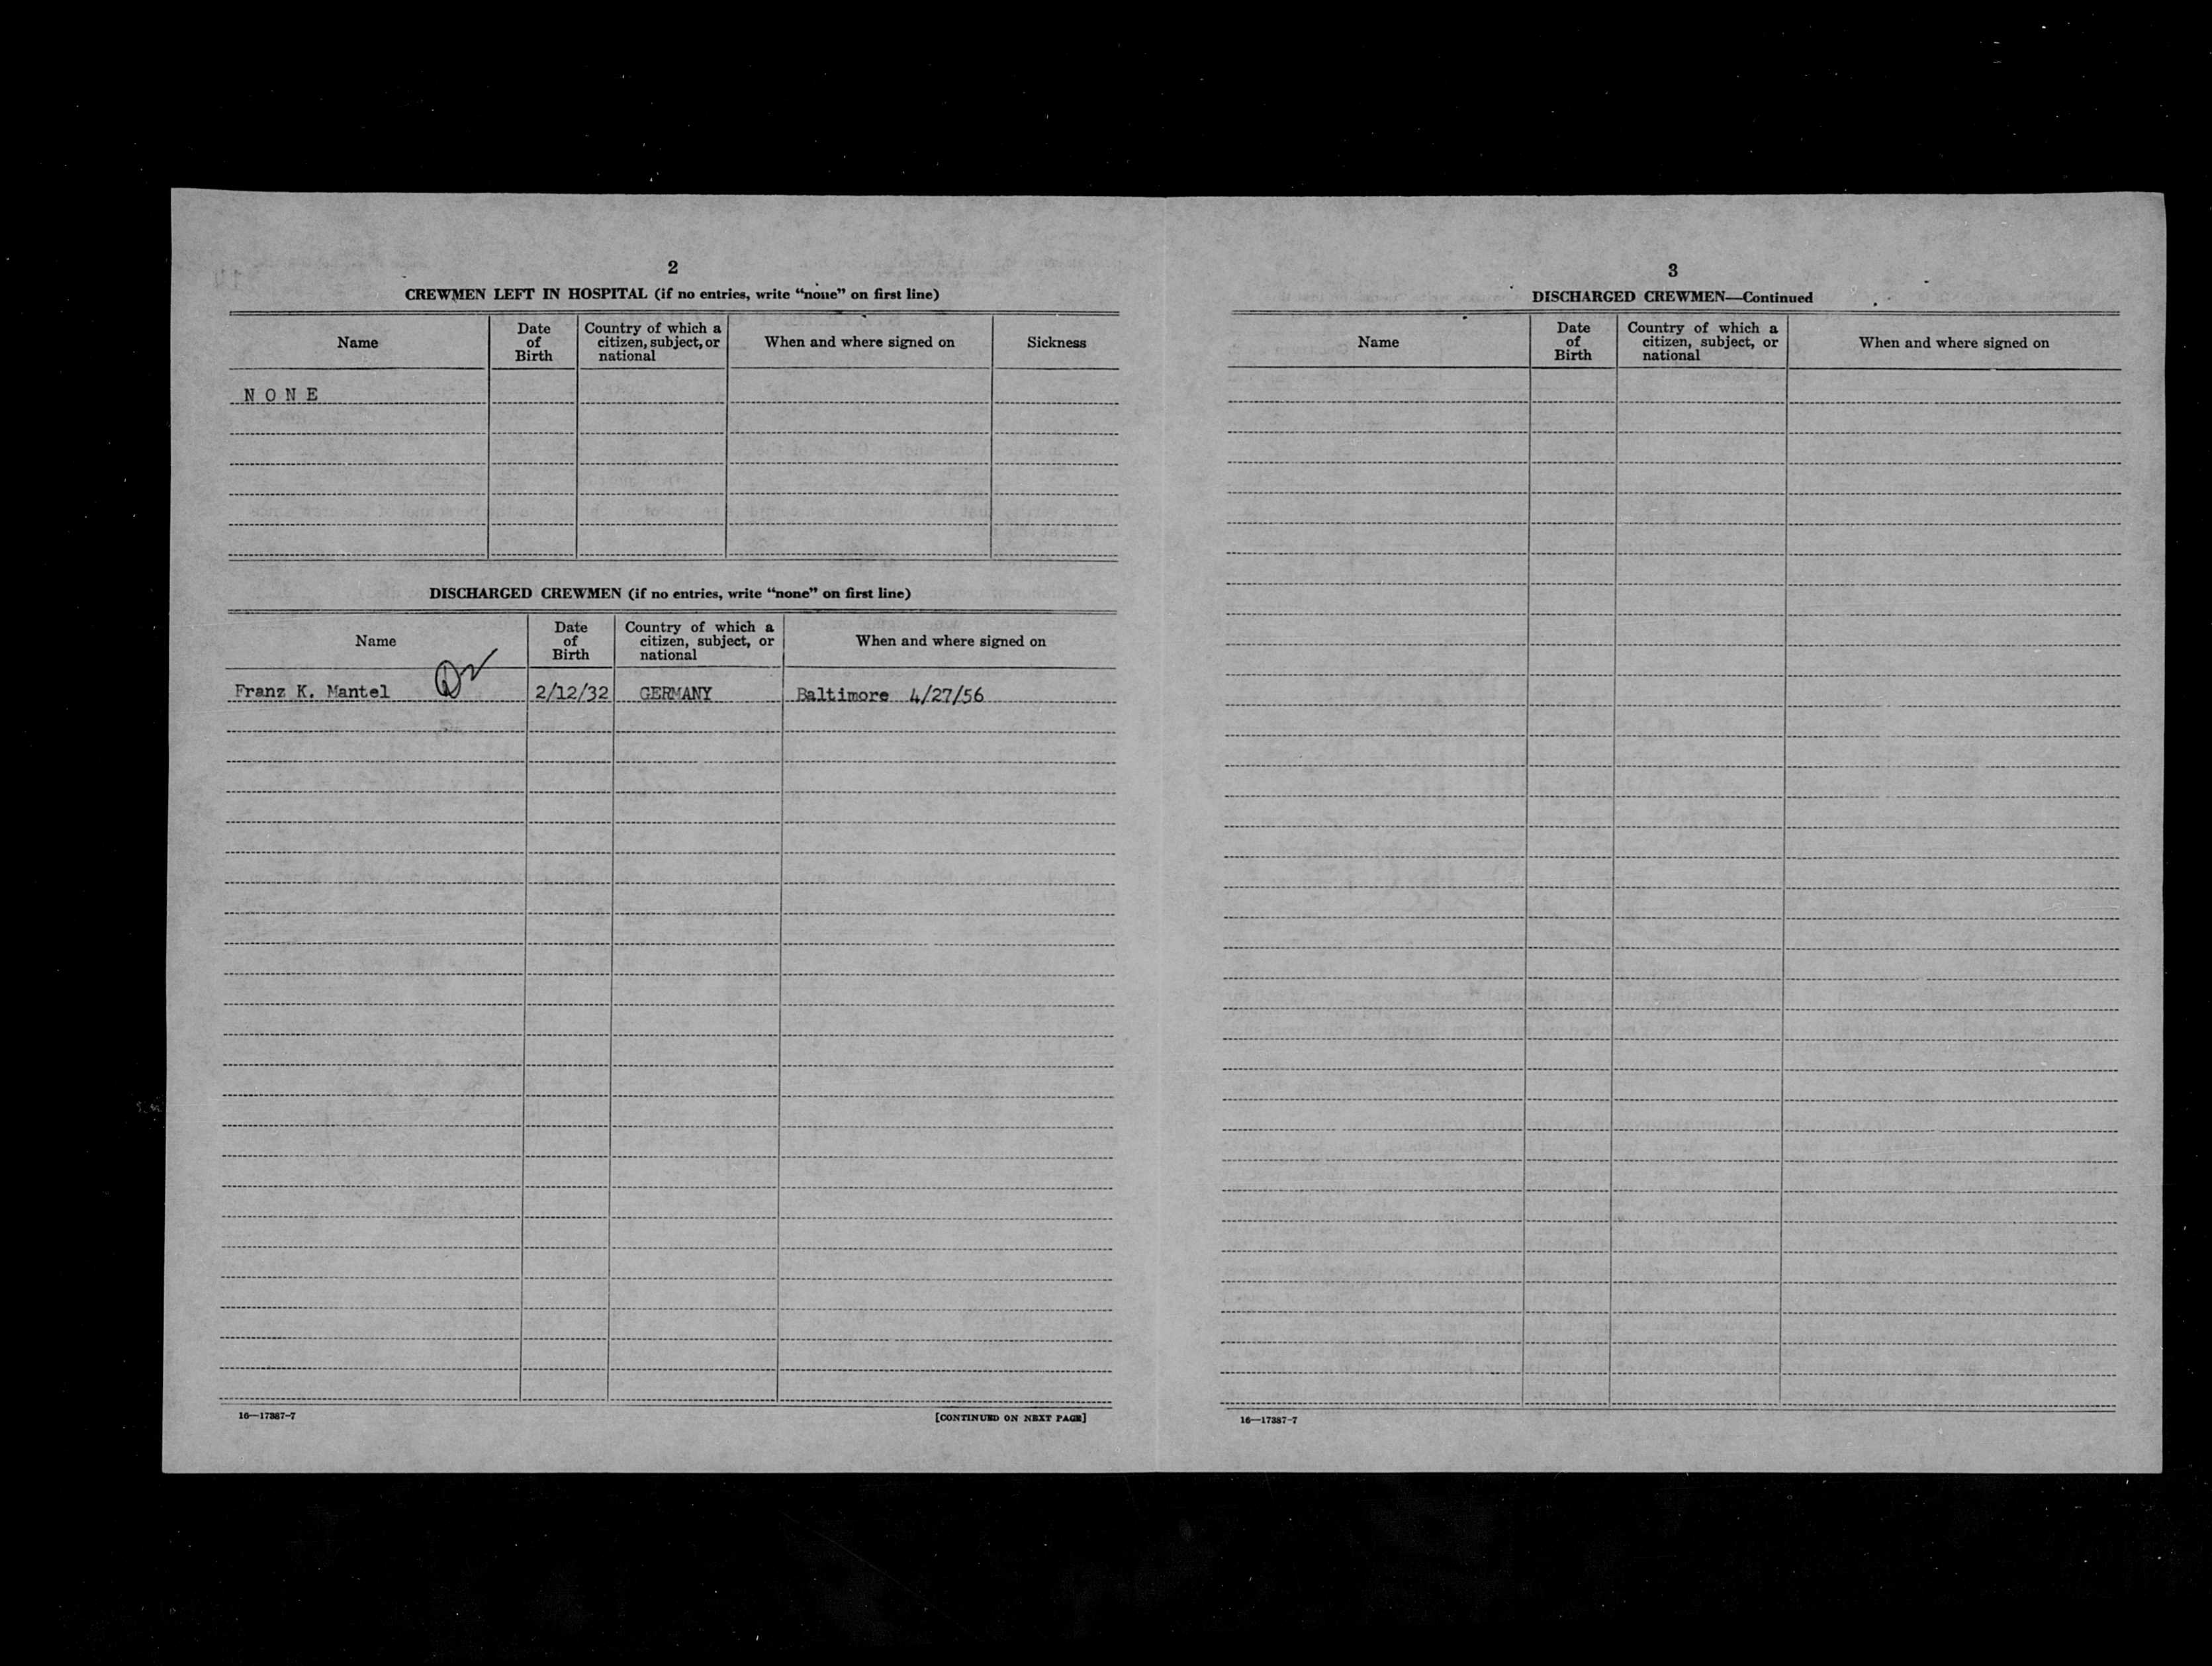 2
CREWMEN LEFT IN HOSPITAL (if no entries, write “none” on first line)
Name
Date of Birth
Country of which a citizen, subject, or national
When and where signed on
Sickness
NONE
DISCHARGED CREWMEN (if no entries, write “none” on first line)
Name
Date of Birth
Country of which a citizen, subject, or national
When and where signed on
Franz K. Mantel 2/12/32 GERMANY Baltimore 4/27/56
16—17387-7
[CONTINUED ON NEXT PAGE]
3
DISCHARGED CREWMEN—Continued
Name
Date of Birth
Country of which a citizen, subject, or national
When and where signed on
16—17387-7